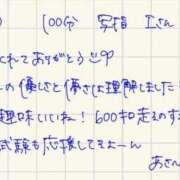 100分 写指 Iさん
くれてありがとう♡
の優しさと優さは理解しました!
趣味いいね! 600キロ走るのす
試験も応援してるよーん
あさん